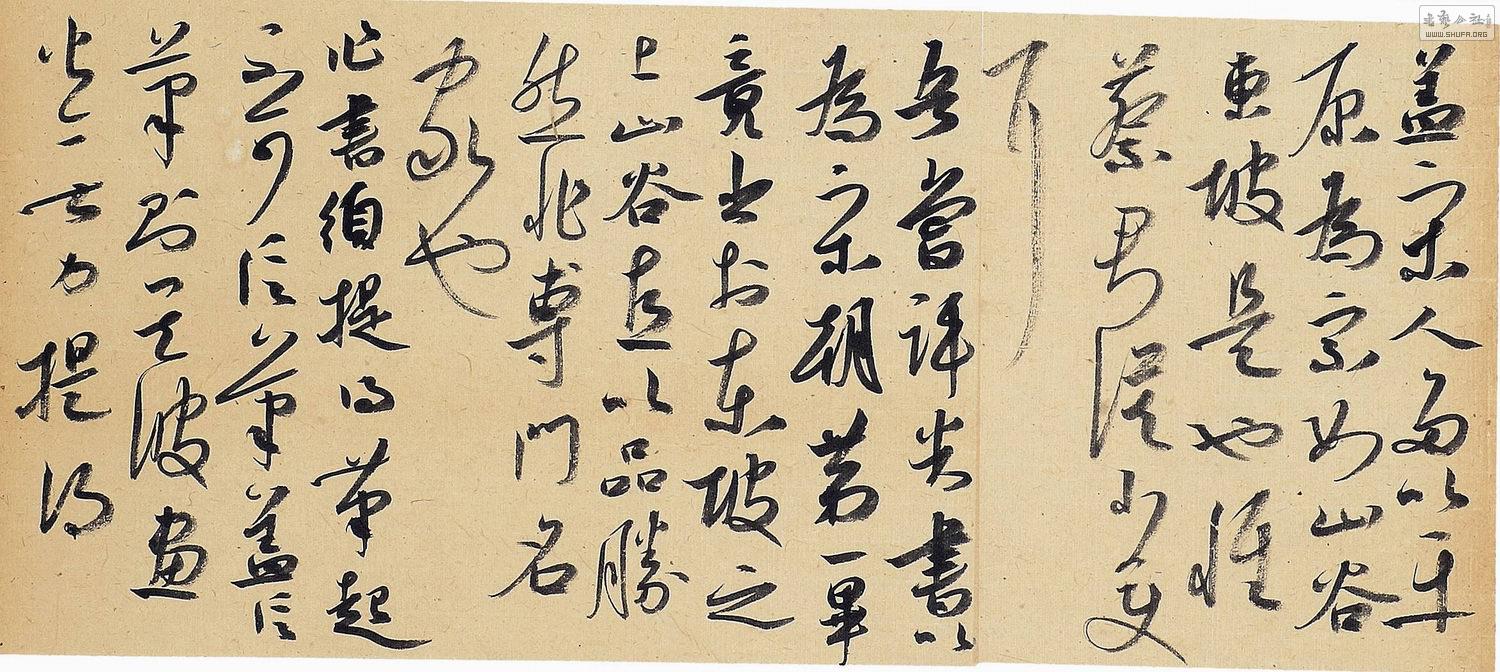 蓋宋人多以平
原為宗如山谷
東坡是也惟
蔡君謨少變
耳
吾嘗評米書以
為宋朝第一畢
竟出於東坡之
上山谷直以品勝
然非專門名
家也
作書須提得筆起
不可信筆蓋信
筆則其波畫
皆無力提得
书艺公社
WWW.SHUFA.ORG